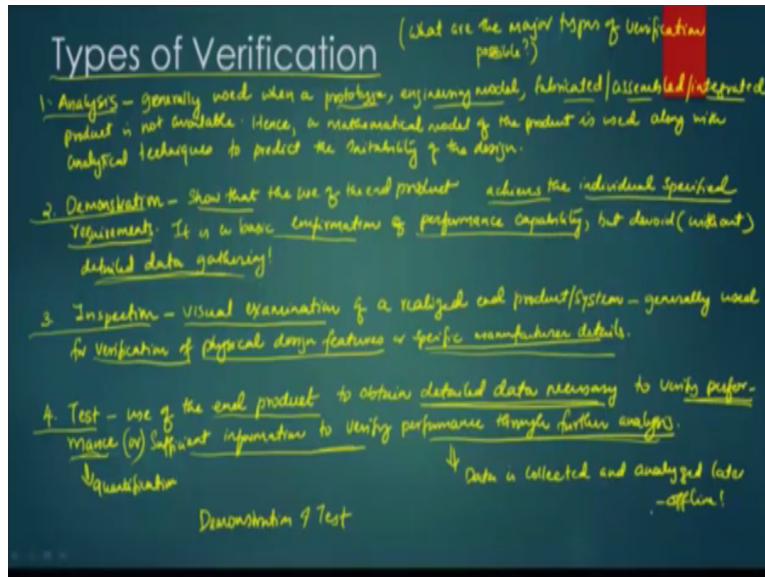 Types of Verification
(What are the major types of verification
possible?)
1. Analysis – generally used when a prototype, engineering model, fabricated/assembled/integrated
product is not available. Hence, a mathematical model of the product is used along with
analytical techniques to predict the suitability of the design.
2. Demonstration – Show that the use of the end product achieves the individual specified
requirements. It is a basic confirmation of performance capability, but devoid (without)
detailed data gathering!
3. Inspection – visual examination of a realized end product/system – generally used
for verification of physical design features or specific manufacturer details.
4. Test – use of the end product to obtain detailed data necessary to verify perfor-
mance (or) Sufficient information to verify performance through further analysis.
↓ quantification
↓ Data is collected and analyzed later
– offline!
Demonstration ≠ Test